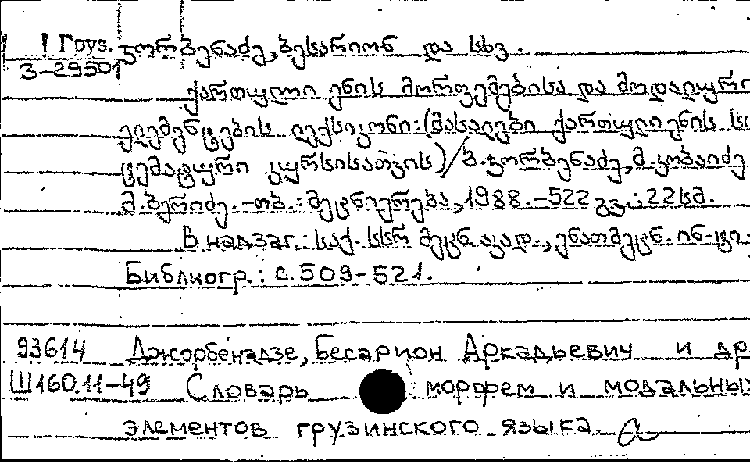 1 Груз. ჯორბენაძე, ბესარიონ და სხვ.
3-29501
ქართული ენის მორფემებისა და მოდალური
ელემენტების ლექსიკონი: (მასალები ქართული ენის სის
ტემატური კურსისათვის) / ბ. ჯორბენაძე, მ. კობაიძე,
მ. ბერიძე. - თბ.: მეცნიერება, 1988. - 522 გვ.; 22 სმ.
В надзаг.: საქ. სსრ მეცნ. აკად., ენათმეცნ. ინ-ტი.
Библиогр.: с. 509-521.
93614 Джорбенадзе, Бесарион Аркадьевич и др
Ш160.11-49 Словарь морфем и модальных
элементов грузинского языка.